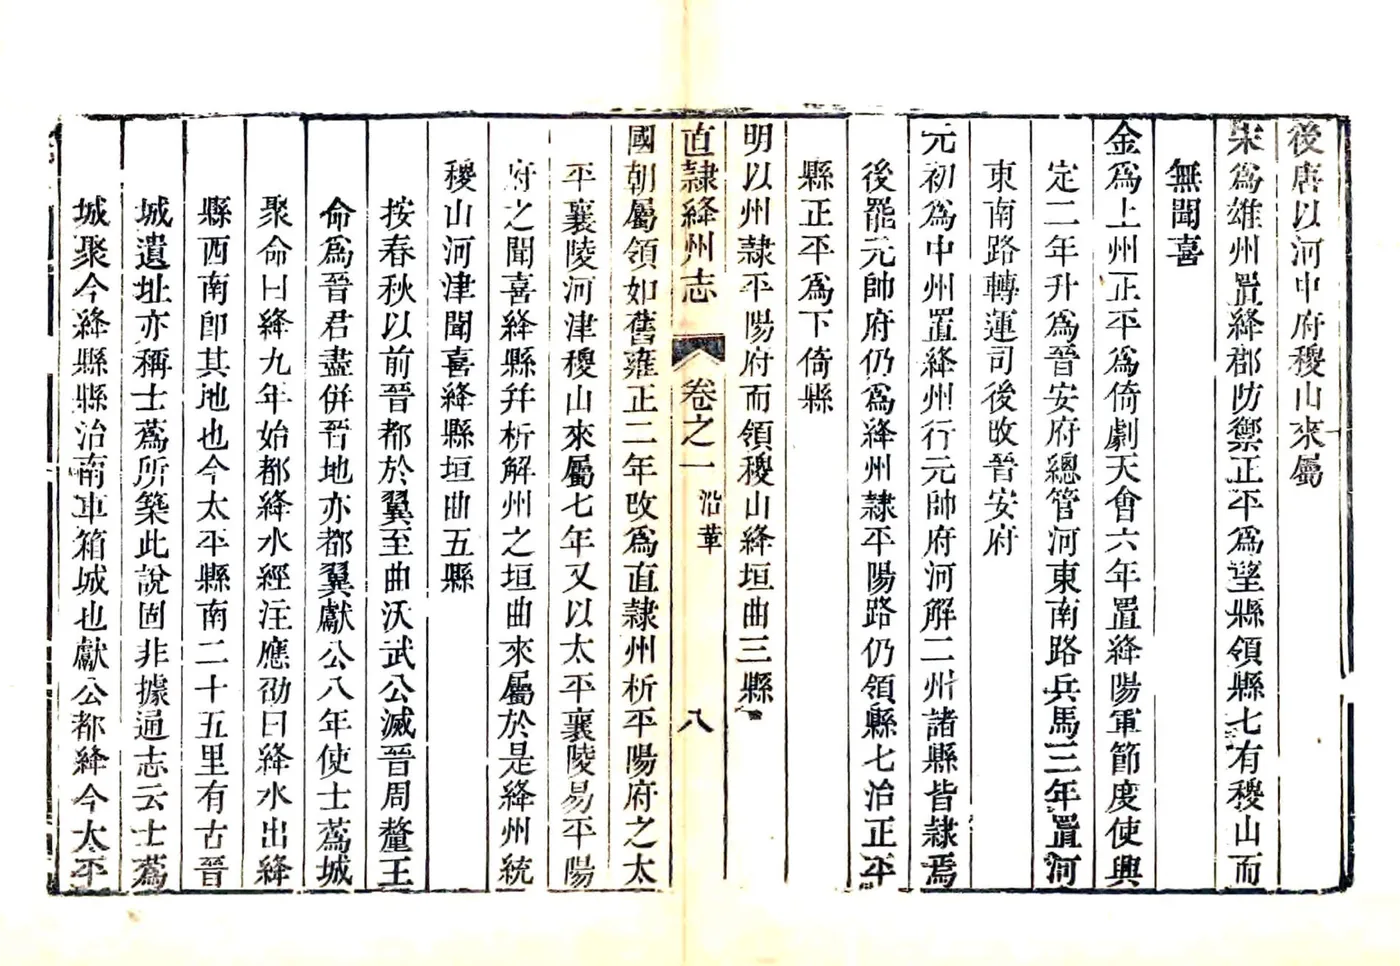 後唐以河中府稷山來屬
宋為雄州置絳郡防禦正平為望縣領縣七有稷山而
無聞喜
金為上州正平為倚劇天會六年置絳陽軍節度使興
定二年升為晉安府總管河東南路兵馬三年置河
東南路轉運司後改晉安府
元初為中州置絳州行元帥府河解二州諸縣皆隸焉
後罷元帥府仍為絳州隸平陽路仍領縣七治正平
縣正平為下倚縣
明以州隸平陽府而領稷山絳垣曲三縣
直隸絳州志 卷之一 沿革 八
國朝屬領如舊雍正二年改為直隸州析平陽府之太
平襄陵河津稷山來屬七年又以太平襄陵易平陽
府之聞喜絳縣幷析解州之垣曲來屬於是絳州統
稷山河津聞喜絳縣垣曲五縣
按春秋以前晉都於翼至曲沃武公滅晉周釐王
命為晉君盡併晉地亦都翼獻公八年使士蔿城
聚命曰絳九年始都絳水經注應劭曰絳水出絳
縣西南卽其地也今太平縣南二十五里有古晉
城遺址亦稱士蔿所築此說固非據通志云士蔿
城聚今絳縣縣治南車箱城也獻公都絳今太平